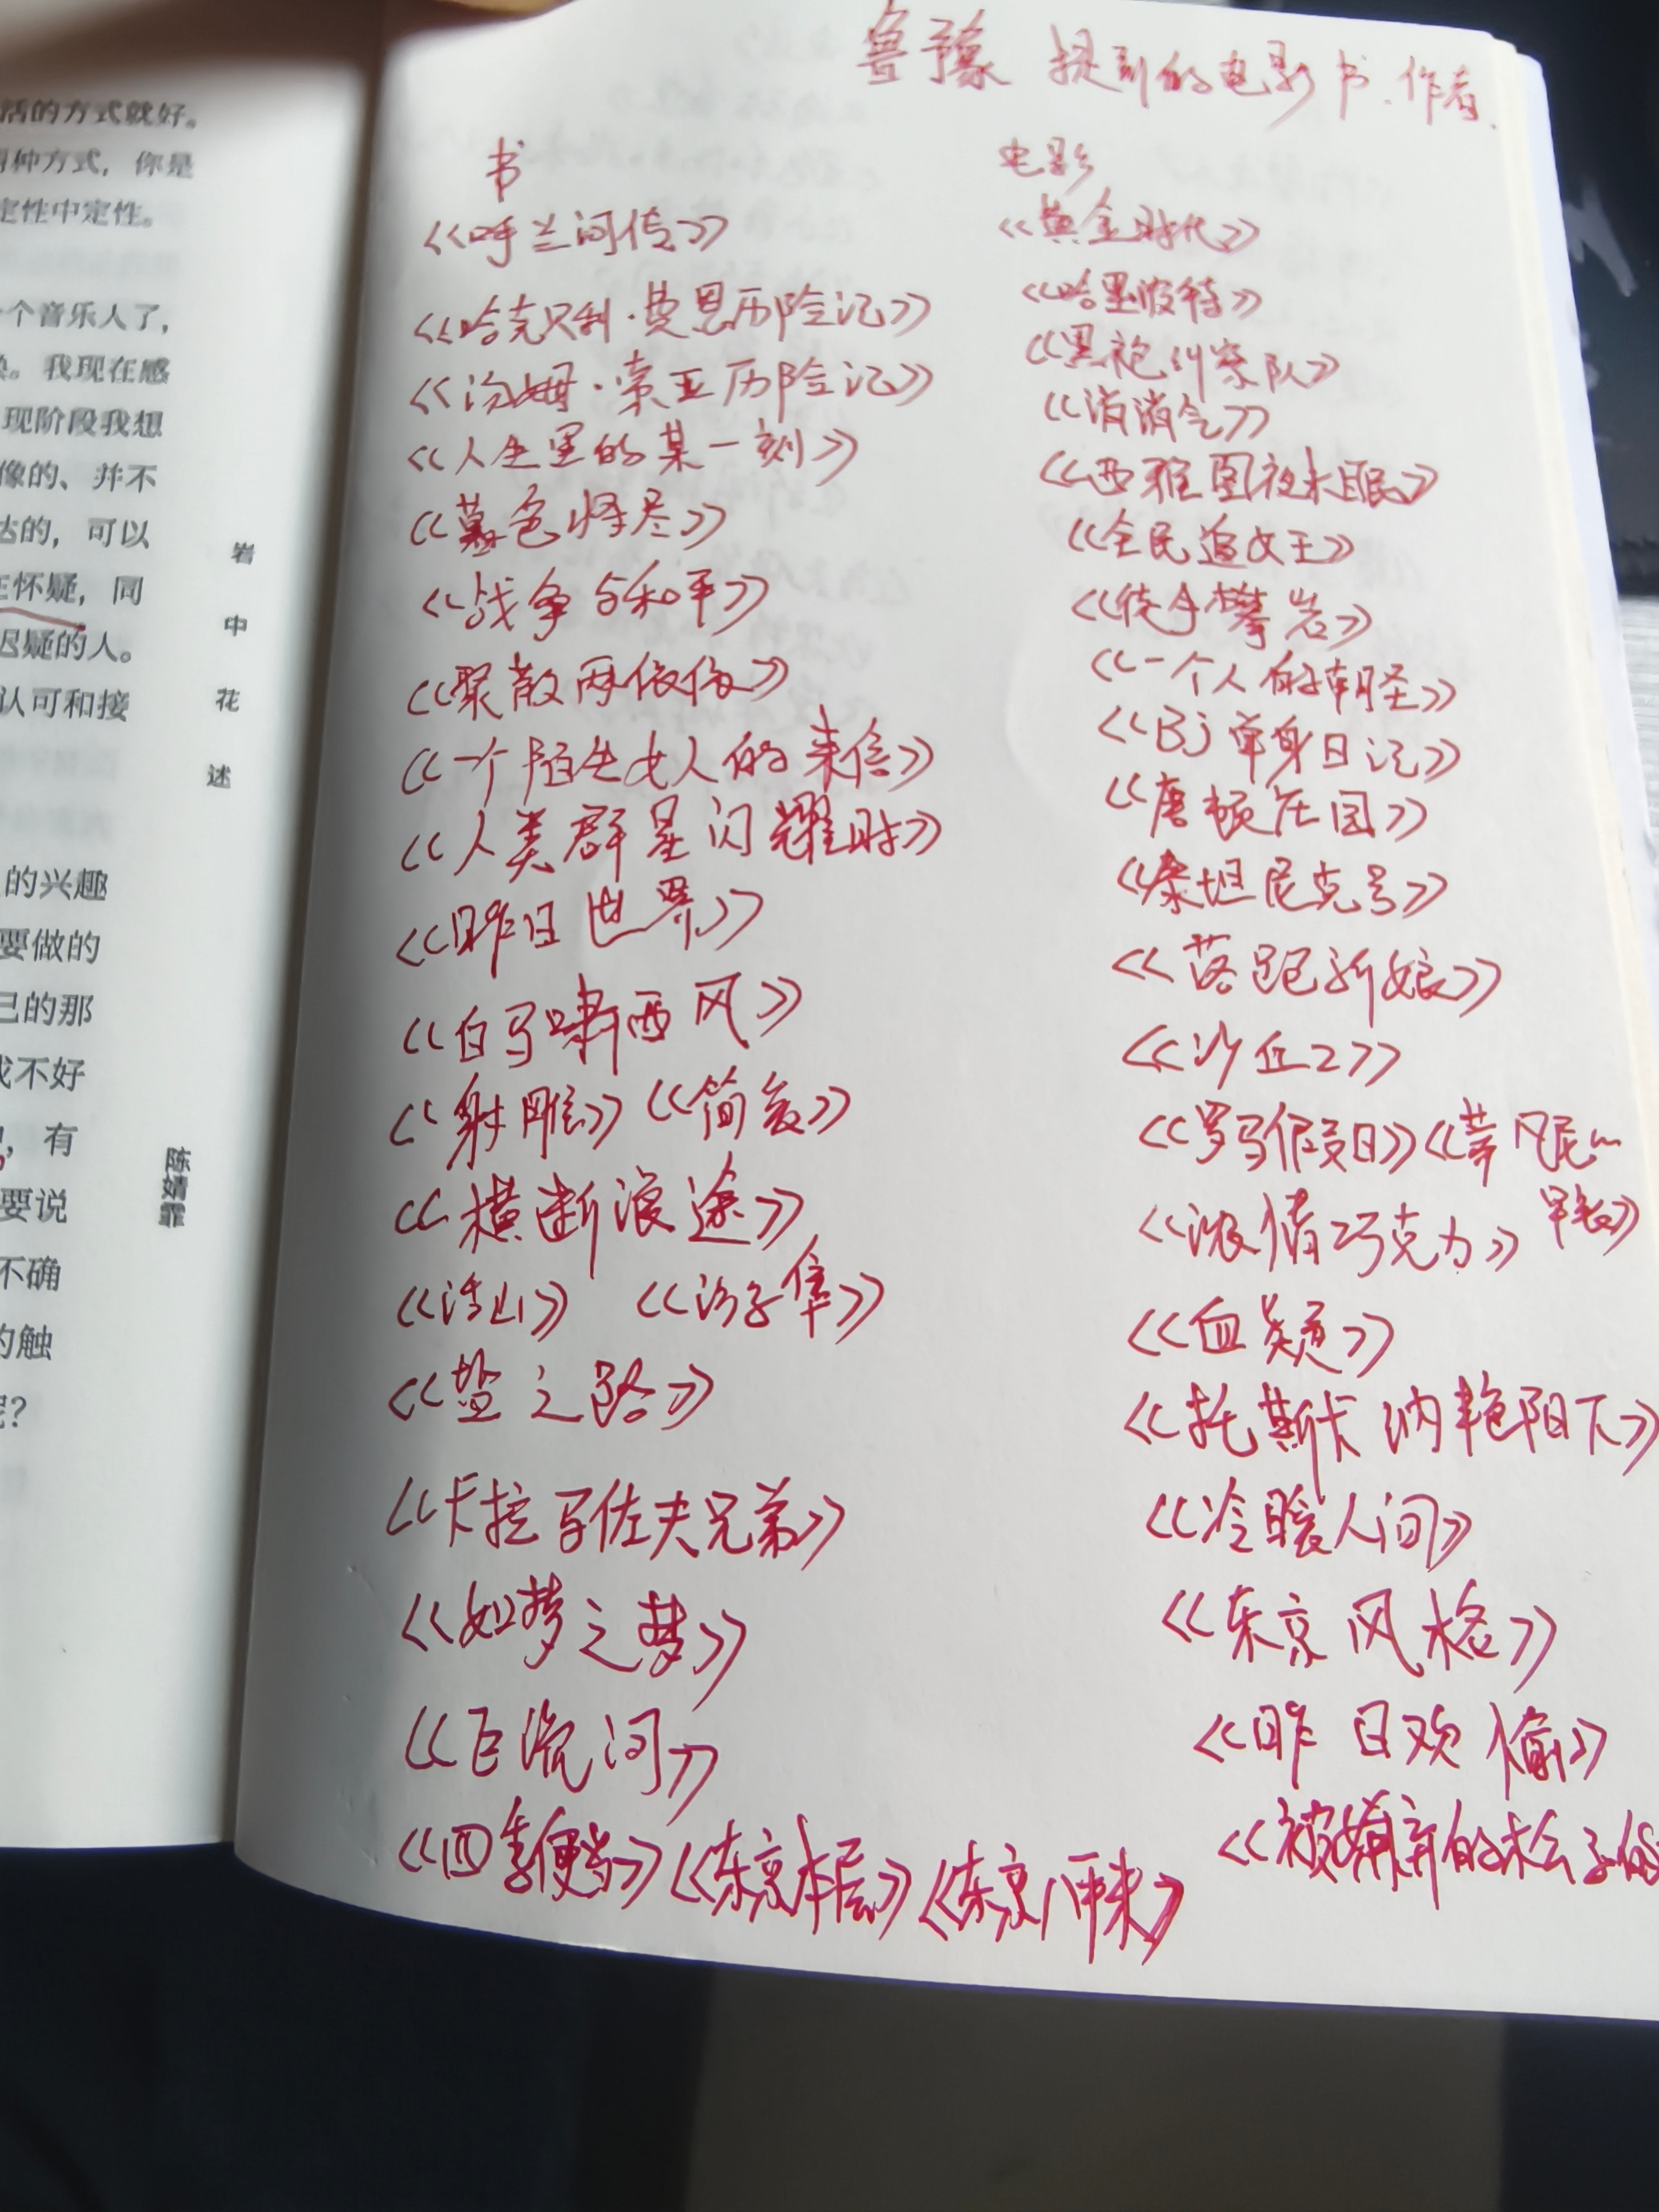 活的方式就好。
种方式，你是
定性中定性。
一个音乐人了，
。我现在感
现阶段我想
像的、并不
达的，可以
在怀疑，同
迟疑的人。
认可和接
的兴趣
要做的
己的那
不好
，有
要说
不确
的触
？
岩中花述
陈婧霏
鲁豫 提到的电影书.作者.
书
《呼兰河传》
《哈克贝利·费恩历险记》
《汤姆·索亚历险记》
《人生里的某一刻》
《暮色将尽》
《战争与和平》
《聚散两依依》
《一个陌生女人的来信》
《人类群星闪耀时》
《昨日世界》
《白马啸西风》
《射雕》《简爱》
《横断浪途》
《活山》 《汤子隼》
《盐之路》
《卡拉马佐夫兄弟》
《如梦之梦》
《巨流河》
《四季便当》《东京本屋》《东京八平米》
电影
《黄金时代》
《哈里波特》
《黑袍纠察队》
《消消气》
《西雅图夜未眠》
《全民追女王》
《徒手攀岩》
《一个人的朝圣》
《BJ单身日记》
《唐顿庄园》
《泰坦尼克号》
《落跑新娘》
《沙丘2》
《罗马假日》《蒂凡尼~
早餐》
《浓情巧克力》
《血疑》
《托斯卡纳艳阳下》
《冷暖人间》
《东京风格》
《昨日欢愉》
《被嫌弃的松子的